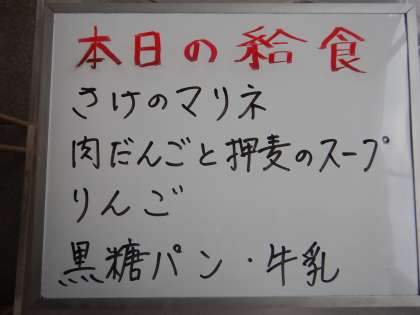 本日の給食
さけのマリネ
肉だんごと押麦のスープ
りんご
黒糖パン・牛乳